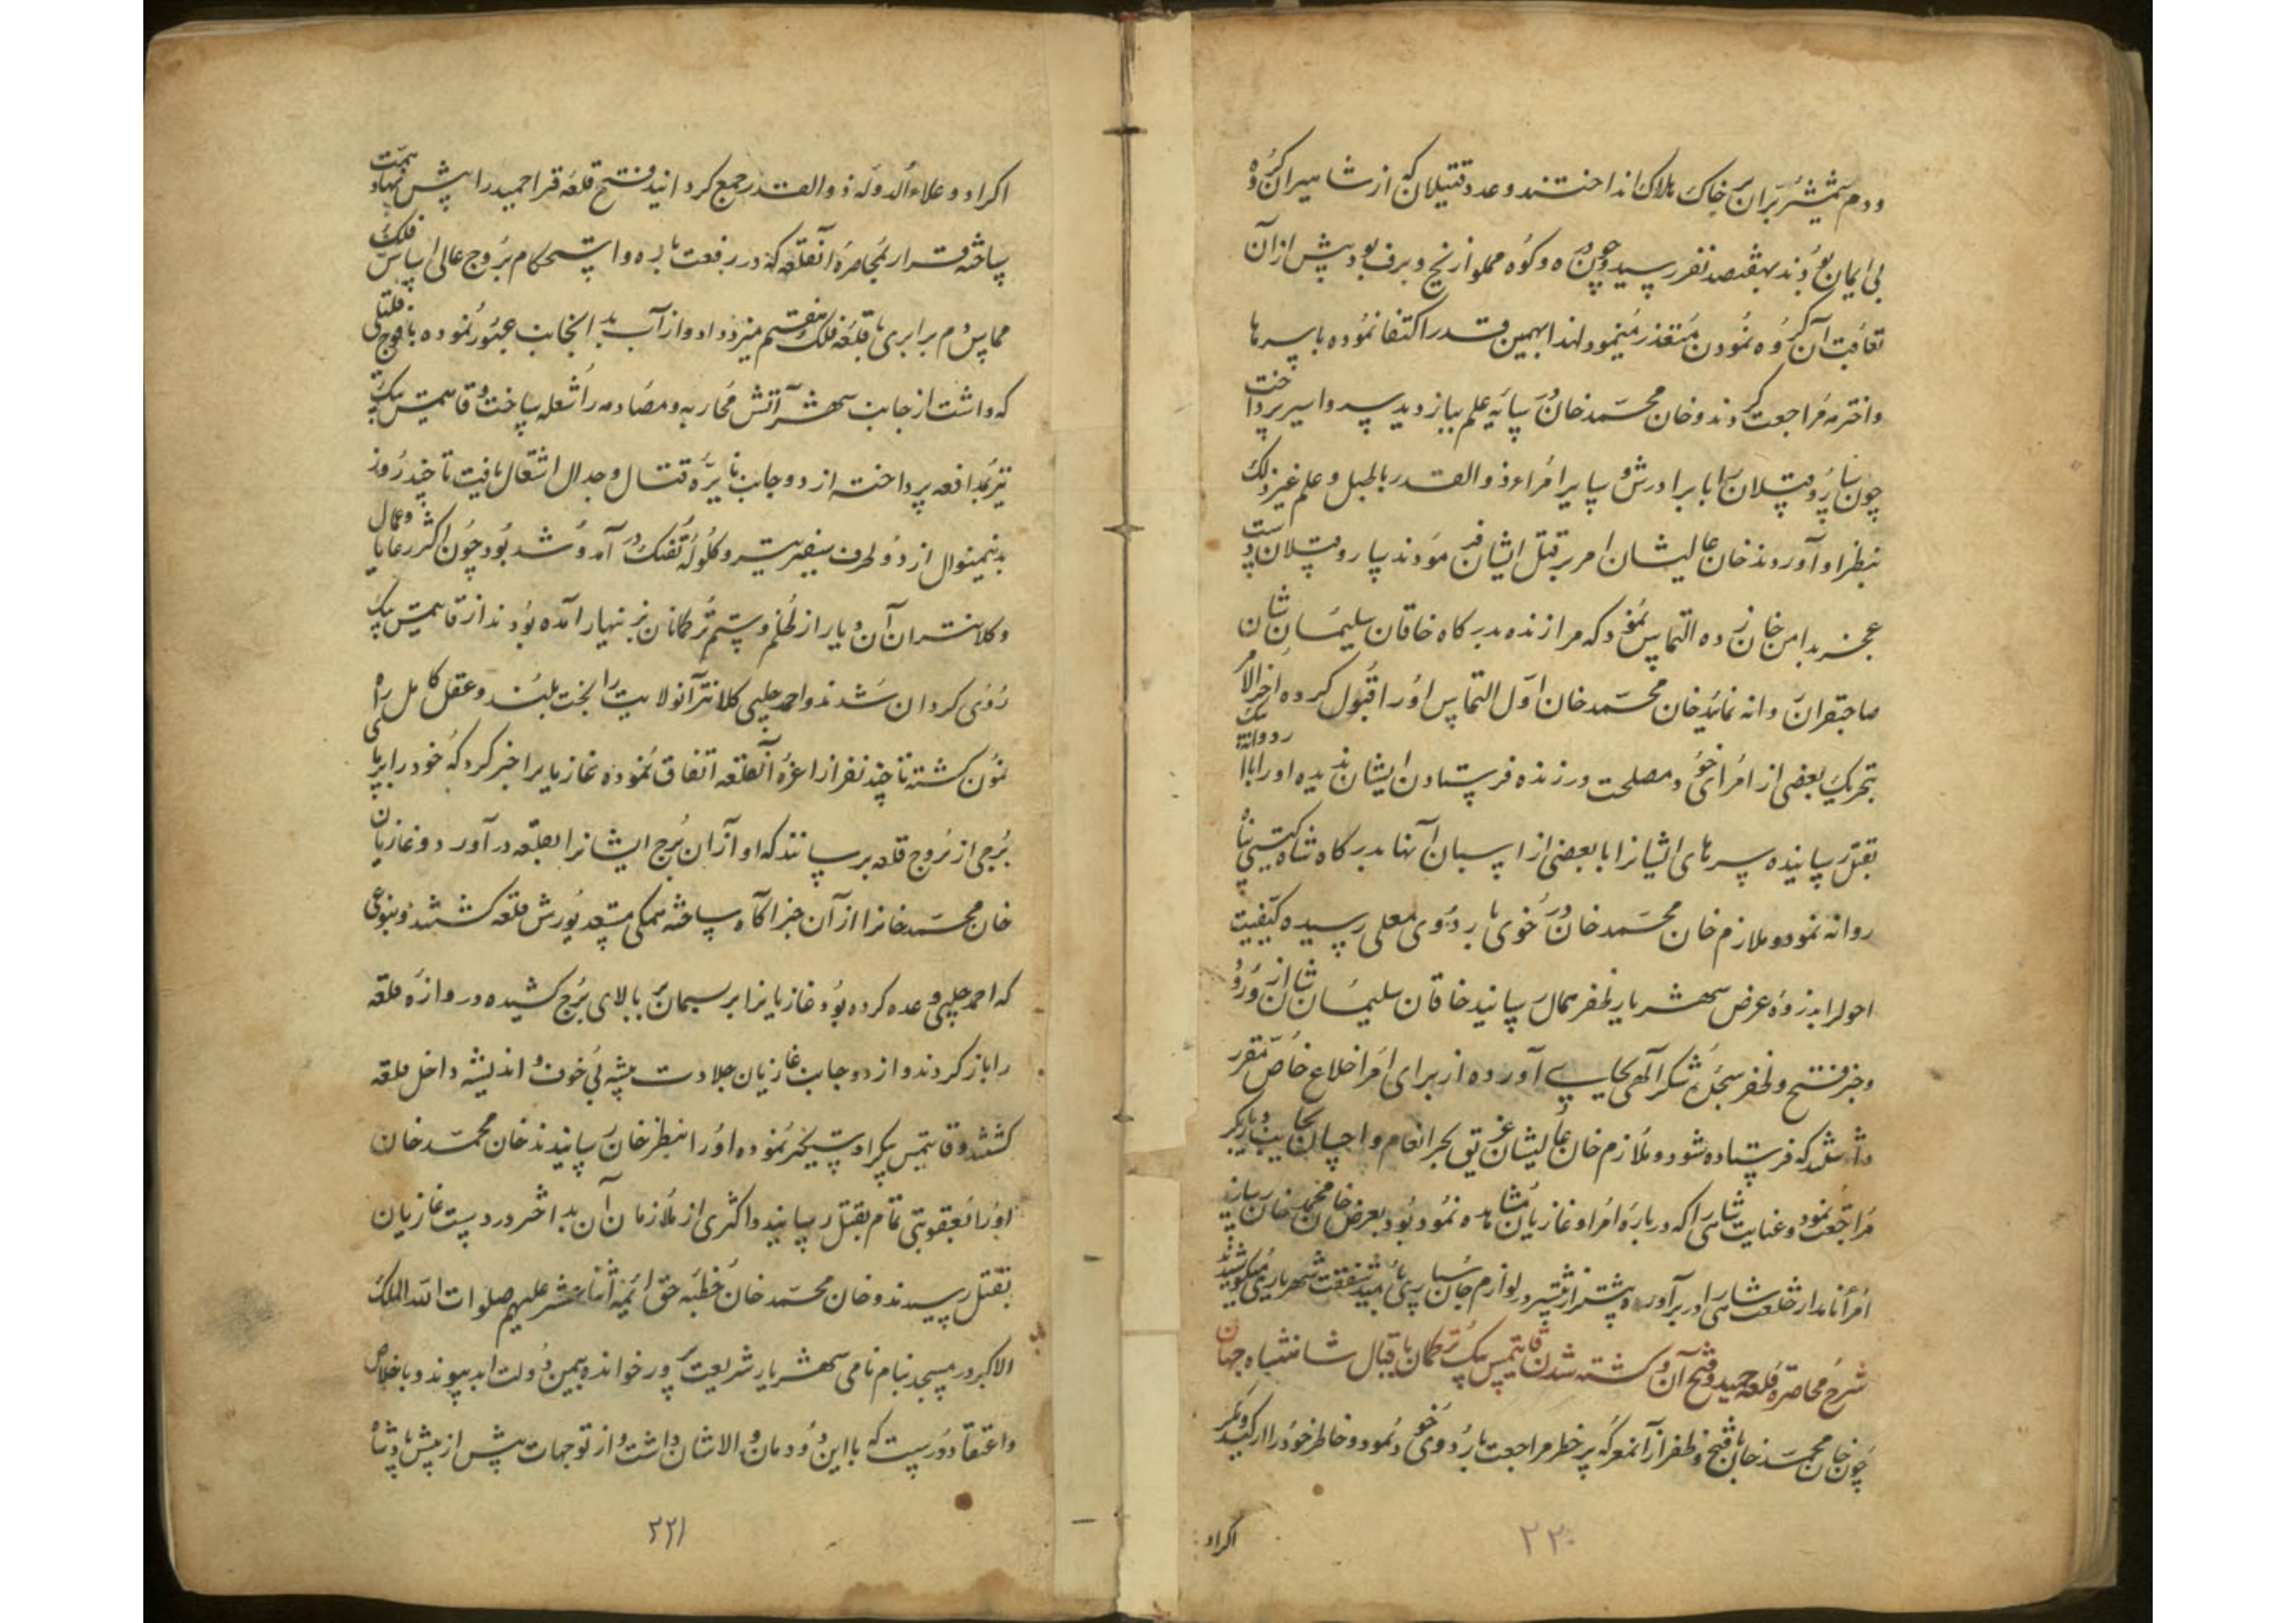 ودم شمشیر بران بر خاک هلاک انداختند و عدد قتیلان که از مشاهیر آن گروه
بی ایمان بودند بهفتصد نفر رسید و چون ره و کوه مملو از یخ و برف بود پیش از آن
تعاقب آن گروه نمودن متعذر مینمود لهذا بهمین قدر اکتفا نموده با سرها
واخترمه مراجعت کردند و خان محمد خان در پایه علم ببازدید سر و اسیر پرداخت
چون سارو قپلان را با برادرش و سایر امراء ذوالقدر با طبل و علم
بنظر او آوردند خان عالیشان امر بر قتل ایشان فرمودند سارو قپلان دست
عجز بدامن خان زده التماس نمود که مرا زنده بدرکاه خاقان سلیمان شان
صاحبقران روانه نمائید خان محمد خان اول التماس او را قبول کرده اخر الامر
بتحریک بعضی از امرای خود مصلحت در زنده فرستادن ایشان ندیده او را با
بقتل رسانیده سرهای ایشانرا با بعضی از اسبان آنها بدرکاه شاه کیتی پناه
روانه نمود و ملازم خان محمد خان در خوی باردوی معلی رسیده کیفیت
احوالرا بذروه عرض شهریار ظفر مآل رسانید خاقان سلیمان شان از ورود
و خبر فتح و ظفر سجده شکر الهی بجای آورده از برای امرا خلاع خاص مقرر
داشتند که فرستاده شود و ملازم خان عالیشان غریق بحر انعام و احسان بجانب دیاربکر
مراجعت نمود و عنایت شاهی را که درباره امرا و غازیان مشاهده نموده بود بعرض خان محمد خان رسانید
امراء نامدار خلعت شاهی را در بر آورده پیشتر از پیشتر در لوازم جان سپاری بامید شفقت شهریاری میکوشیدند
شرح محاصره قلعه حمید و فتح آن و کشته شدن قایتمس بیک ترکمان باقبال شاهنشاه جهان
چون خان محمد خان با فتح و ظفر از آن معرکه پر خطر مراجعت باردوی خود نمود و خاطر خود را از کید و مکر
اکراد
۲۲۰
اکراد و علاء الدوله ذوالقدر جمع گردانید فتح قلعه قرا حمید را پیش نهاد همت
ساخته قرار بمحاصره آن قلعه که در رفعت باره و استحکام بروج عالی اساس فلک
مماس دم برابری با قلعه فلک هفتم میزد داد و از آب بدانجانب عبور نموده با فوج قتالی
که داشت از جانب شهر آتش محاربه و مصادمه را شعله ساخت و قایتمس بیک
نیز بمدافعه پرداخته از دو جانب نایره قتال و جدال اشتعال یافت تا چند روز
بدینمنوال از دو طرف سفیر تیر و کلوله تفنک در آمد و شد بود چون اکثر رعایا و عمال
و کلانتران آن دیار از ظلم و ستم ترکمانان بزنهار آمده بودند از قایتمس بیک
روی کردان شدند و احمد چلبی کلانتر آنولایت را بخت بلند و عقل کامل راه
نمون کشته با چند نفر از اعزه آن قلعه اتفاق نموده غازیانرا خبر کرد که خود را بپای
برجی از بروج قلعه برسانند که او از آن برج ایشانرا بقلعه درآورد و غازیان
خان محمد خانرا از آن خبر آکاه ساخته همکی مستعد یورش قلعه کشتند و بنوعی
که احمد چلبی وعده کرده بود غازیانرا بریسمان ببالای برج کشیده دروازه قلعه
را باز کردند و از دو جانب غازیان جلادت پیشه بی خوف و اندیشه داخل قلعه
کشتند و قایتمس بیک را دستگیر نموده او را بنظر خان رسانیدند خان محمد خان
او را بعقوبتی تمام بقتل رسانید و اکثری از ملازمان آن بداختر در دست غازیان
بقتل رسیدند و خان محمد خان خطبه حق ائمه اثنا عشر علیهم صلوات الله الملک
الاکبر در مسجد بنام نامی شهریار شریعت پرور خوانده بیمن دولت ابد پیوند و باخلاص
واعتقاد درست که با این دودمان والاشان داشت و از توجهات پیش از پیش پادشاه
۲۲۱